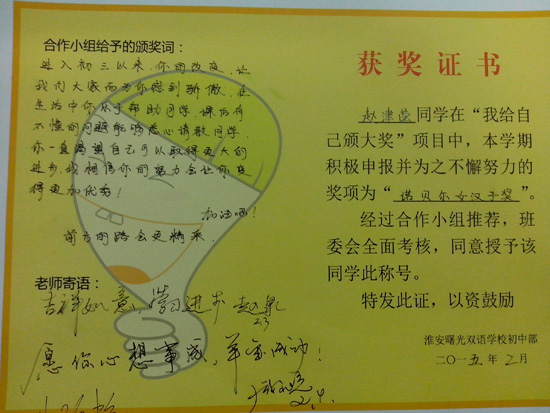 合作小组给予的颁奖词：
进入初三以来，你的改变，让
我们大家而为你感到骄傲，在
生活中你乐于帮助同学，课后有
不懂的问题能够虚心请教同学，
你一直
自己可以取得更大的
进步，我相信你的努力会让你变
得更加优秀！
加油吧！
前方的路会更精采．
老师寄语：
吉祥如意，学习进步
2.3
愿你心想事成，羊宝成功！
2.4.
获奖证书
赵津莹同学在“我给自
己颁大奖”项目中，本学期
积极申报并为之不懈努力的
奖项为“诺贝尔女汉子奖”。
经过合作小组推荐，班
委会全面考核，同意授予该
同学此称号。
特发此证，以资鼓励
淮安曙光双语学校初中部
二〇一五年2月